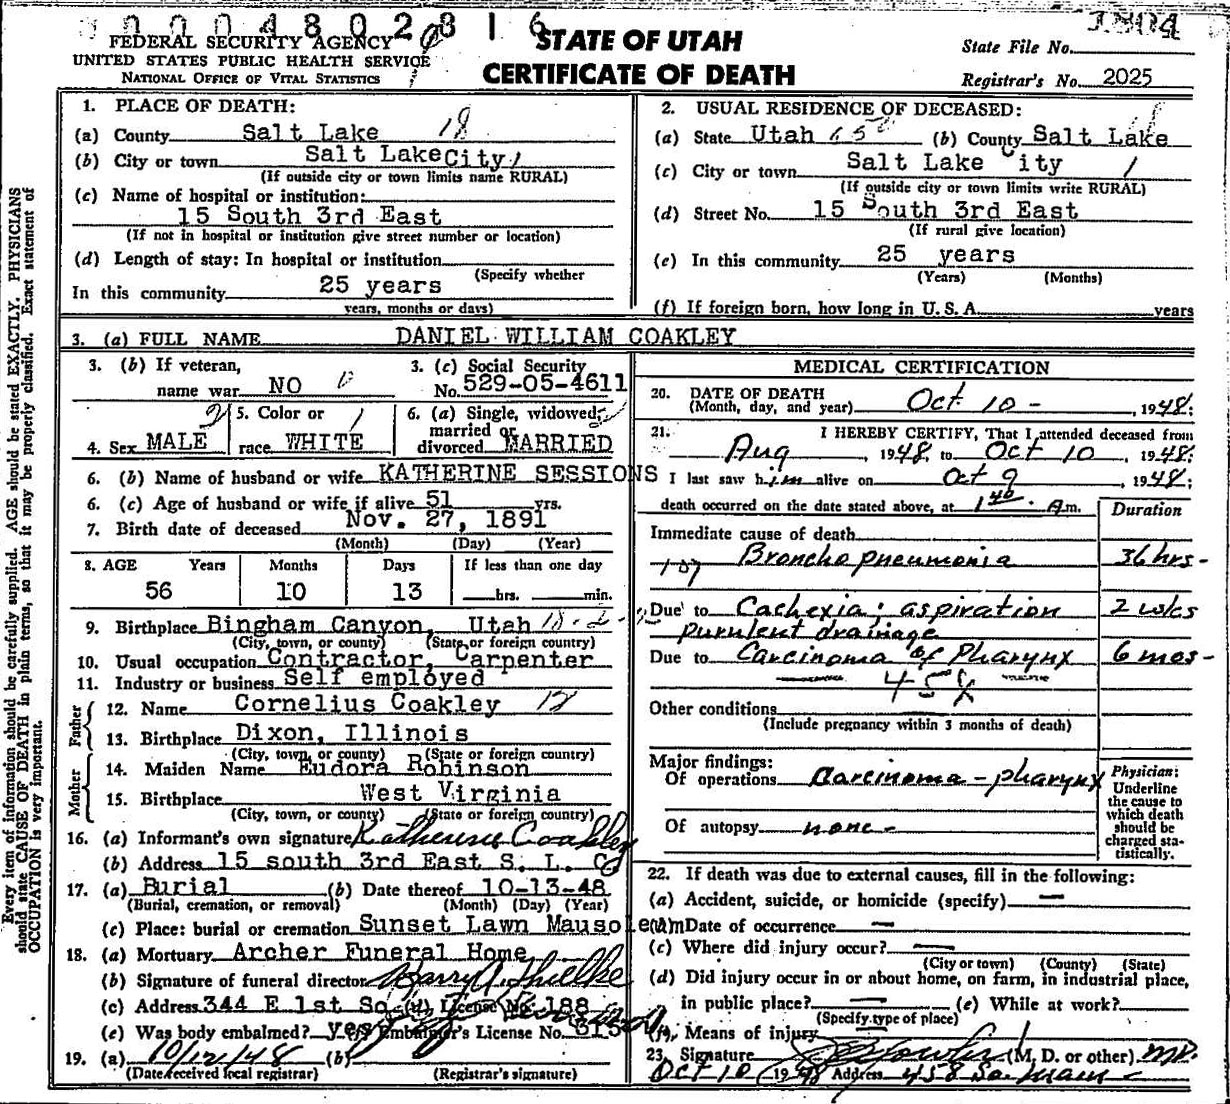 0004802816
FEDERAL SECURITY AGENCY
UNITED STATES PUBLIC HEALTH SERVICE
NATIONAL OFFICE OF VITAL STATISTICS
STATE OF UTAH
CERTIFICATE OF DEATH
State File No.
Registrar's No. 2025
1. PLACE OF DEATH:
(a) County Salt Lake 18
(b) City or town Salt Lake City 1
(If outside city or town limits name RURAL)
(c) Name of hospital or institution:
15 South 3rd East
(If not in hospital or institution give street number or location)
(d) Length of stay: In hospital or institution
(Specify whether
In this community 25 years
years, months or days)
2. USUAL RESIDENCE OF DECEASED:
(a) State Utah (b) County Salt Lake
(c) City or town Salt Lake City 1
(If outside city or town limits write RURAL)
(d) Street No. 15 South 3rd East
(If rural give location)
(e) In this community 25 years
(Years) (Months)
(f) If foreign born, how long in U. S. A. years
3. (a) FULL NAME DANIEL WILLIAM COAKLEY
3. (b) If veteran,
name war NO
3. (c) Social Security
No. 529-05-4611
4. Sex MALE
5. Color or
race WHITE
6. (a) Single, widowed,
married or
divorced MARRIED
6. (b) Name of husband or wife KATHERINE SESSIONS
6. (c) Age of husband or wife if alive 51 yrs.
7. Birth date of deceased Nov. 27, 1891
(Month) (Day) (Year)
8. AGE Years Months Days If less than one day
56 10 13 hrs. min.
9. Birthplace Bingham Canyon, Utah
(City, town, or county) (State or foreign country)
10. Usual occupation Contractor, Carpenter
11. Industry or business Self employed
Father
12. Name Cornelius Coakley 12
13. Birthplace Dixon, Illinois
(City, town, or county) (State or foreign country)
Mother
14. Maiden Name Eudora Robinson
15. Birthplace West Virginia
(City, town, or county) (State or foreign country)
16. (a) Informant's own signature Katherine Coakley
(b) Address 15 south 3rd East S. L. C
17. (a) Burial (b) Date thereof 10-13-48
(Burial, cremation, or removal) (Month) (Day) (Year)
(c) Place: burial or cremation Sunset Lawn Mausoleum
18. (a) Mortuary Archer Funeral Home
(b) Signature of funeral director
(c) Address 344 E 1st So (d) License No. 188
(e) Was body embalmed? yes Embalmer's License No. 315
19. (a) 10/12/48 (b)
(Date received local registrar) (Registrar's signature)
MEDICAL CERTIFICATION
20. DATE OF DEATH
(Month, day, and year) Oct 10 - , 1948;
21. I HEREBY CERTIFY, That I attended deceased from
Aug , 1948, to Oct 10 , 1948;
I last saw him alive on Oct 9 , 1948;
death occurred on the date stated above, at 1 40 A.m.
Duration
Immediate cause of death
107 Bronchopneumonia 36 hrs-
Due to Cachexia; aspiration 2 wks
purulent drainage
Due to Carcinoma of Pharynx 6 mos-
45X
Other conditions
(Include pregnancy within 3 months of death)
Major findings:
Of operations Carcinoma - pharynx
Of autopsy none -
Physician:
Underline
the cause to
which death
should be
charged sta-
tistically.
22. If death was due to external causes, fill in the following:
(a) Accident, suicide, or homicide (specify) —
(b) Date of occurrence —
(c) Where did injury occur? —
(City or town) (County) (State)
(d) Did injury occur in or about home, on farm, in industrial place,
in public place? — (e) While at work?
(Specify type of place)
(f) Means of injury
23. Signature (M. D. or other) MD
Oct 10 1948 Address 458 So. Main
Every item of information should be carefully supplied. AGE should be stated EXACTLY. PHYSICIANS
should state CAUSE OF DEATH in plain terms, so that it may be properly classified. Exact statement of
OCCUPATION is very important.